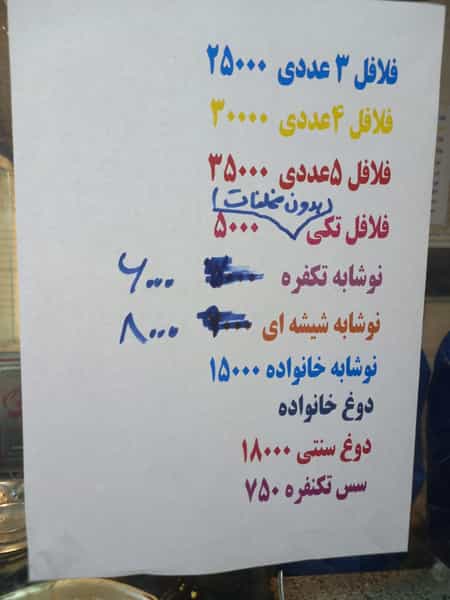 فلافل ۳ عددی ۲۵۰۰۰
فلافل ۴عددی ۳۰۰۰۰
فلافل ۵عددی ۳۵۰۰۰
(بدون مخلفات)
فلافل تکی ۵۰۰۰
نوشابه تکفره ۶۰۰۰
نوشابه شیشه ای ۸۰۰۰
نوشابه خانواده ۱۵۰۰۰
دوغ خانواده
دوغ سنتی ۱۸۰۰۰
سس تکنفره ۷۵۰